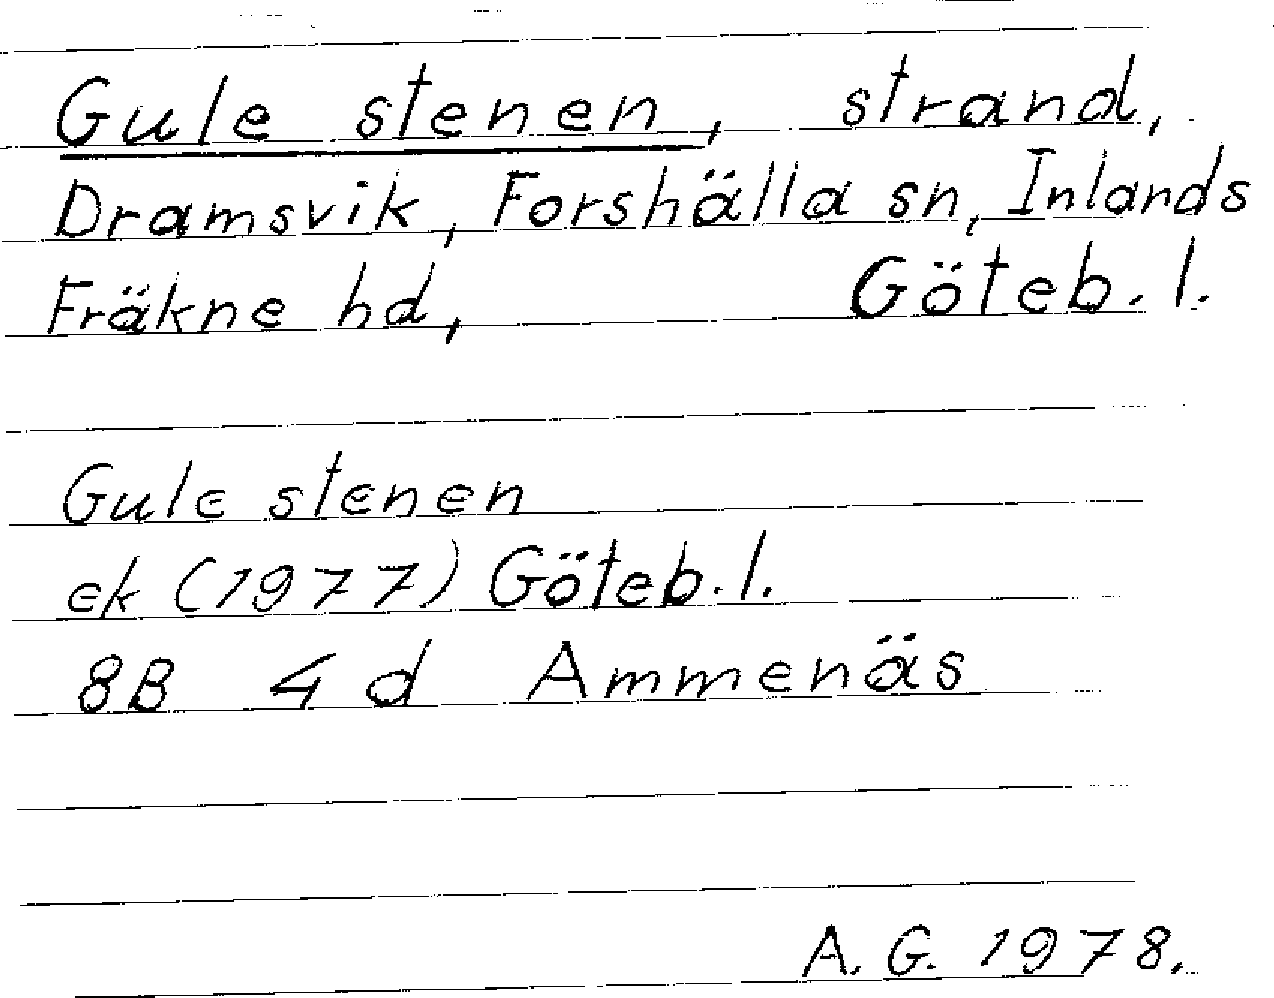 Gule stenen, strand,
Dramsvik, Forshälla sn, Inlands
Fräkne hd, Göteb. l.
Gule stenen
ek (1977) Göteb. l.
8B 4 d Ammenäs
A. G. 1978.